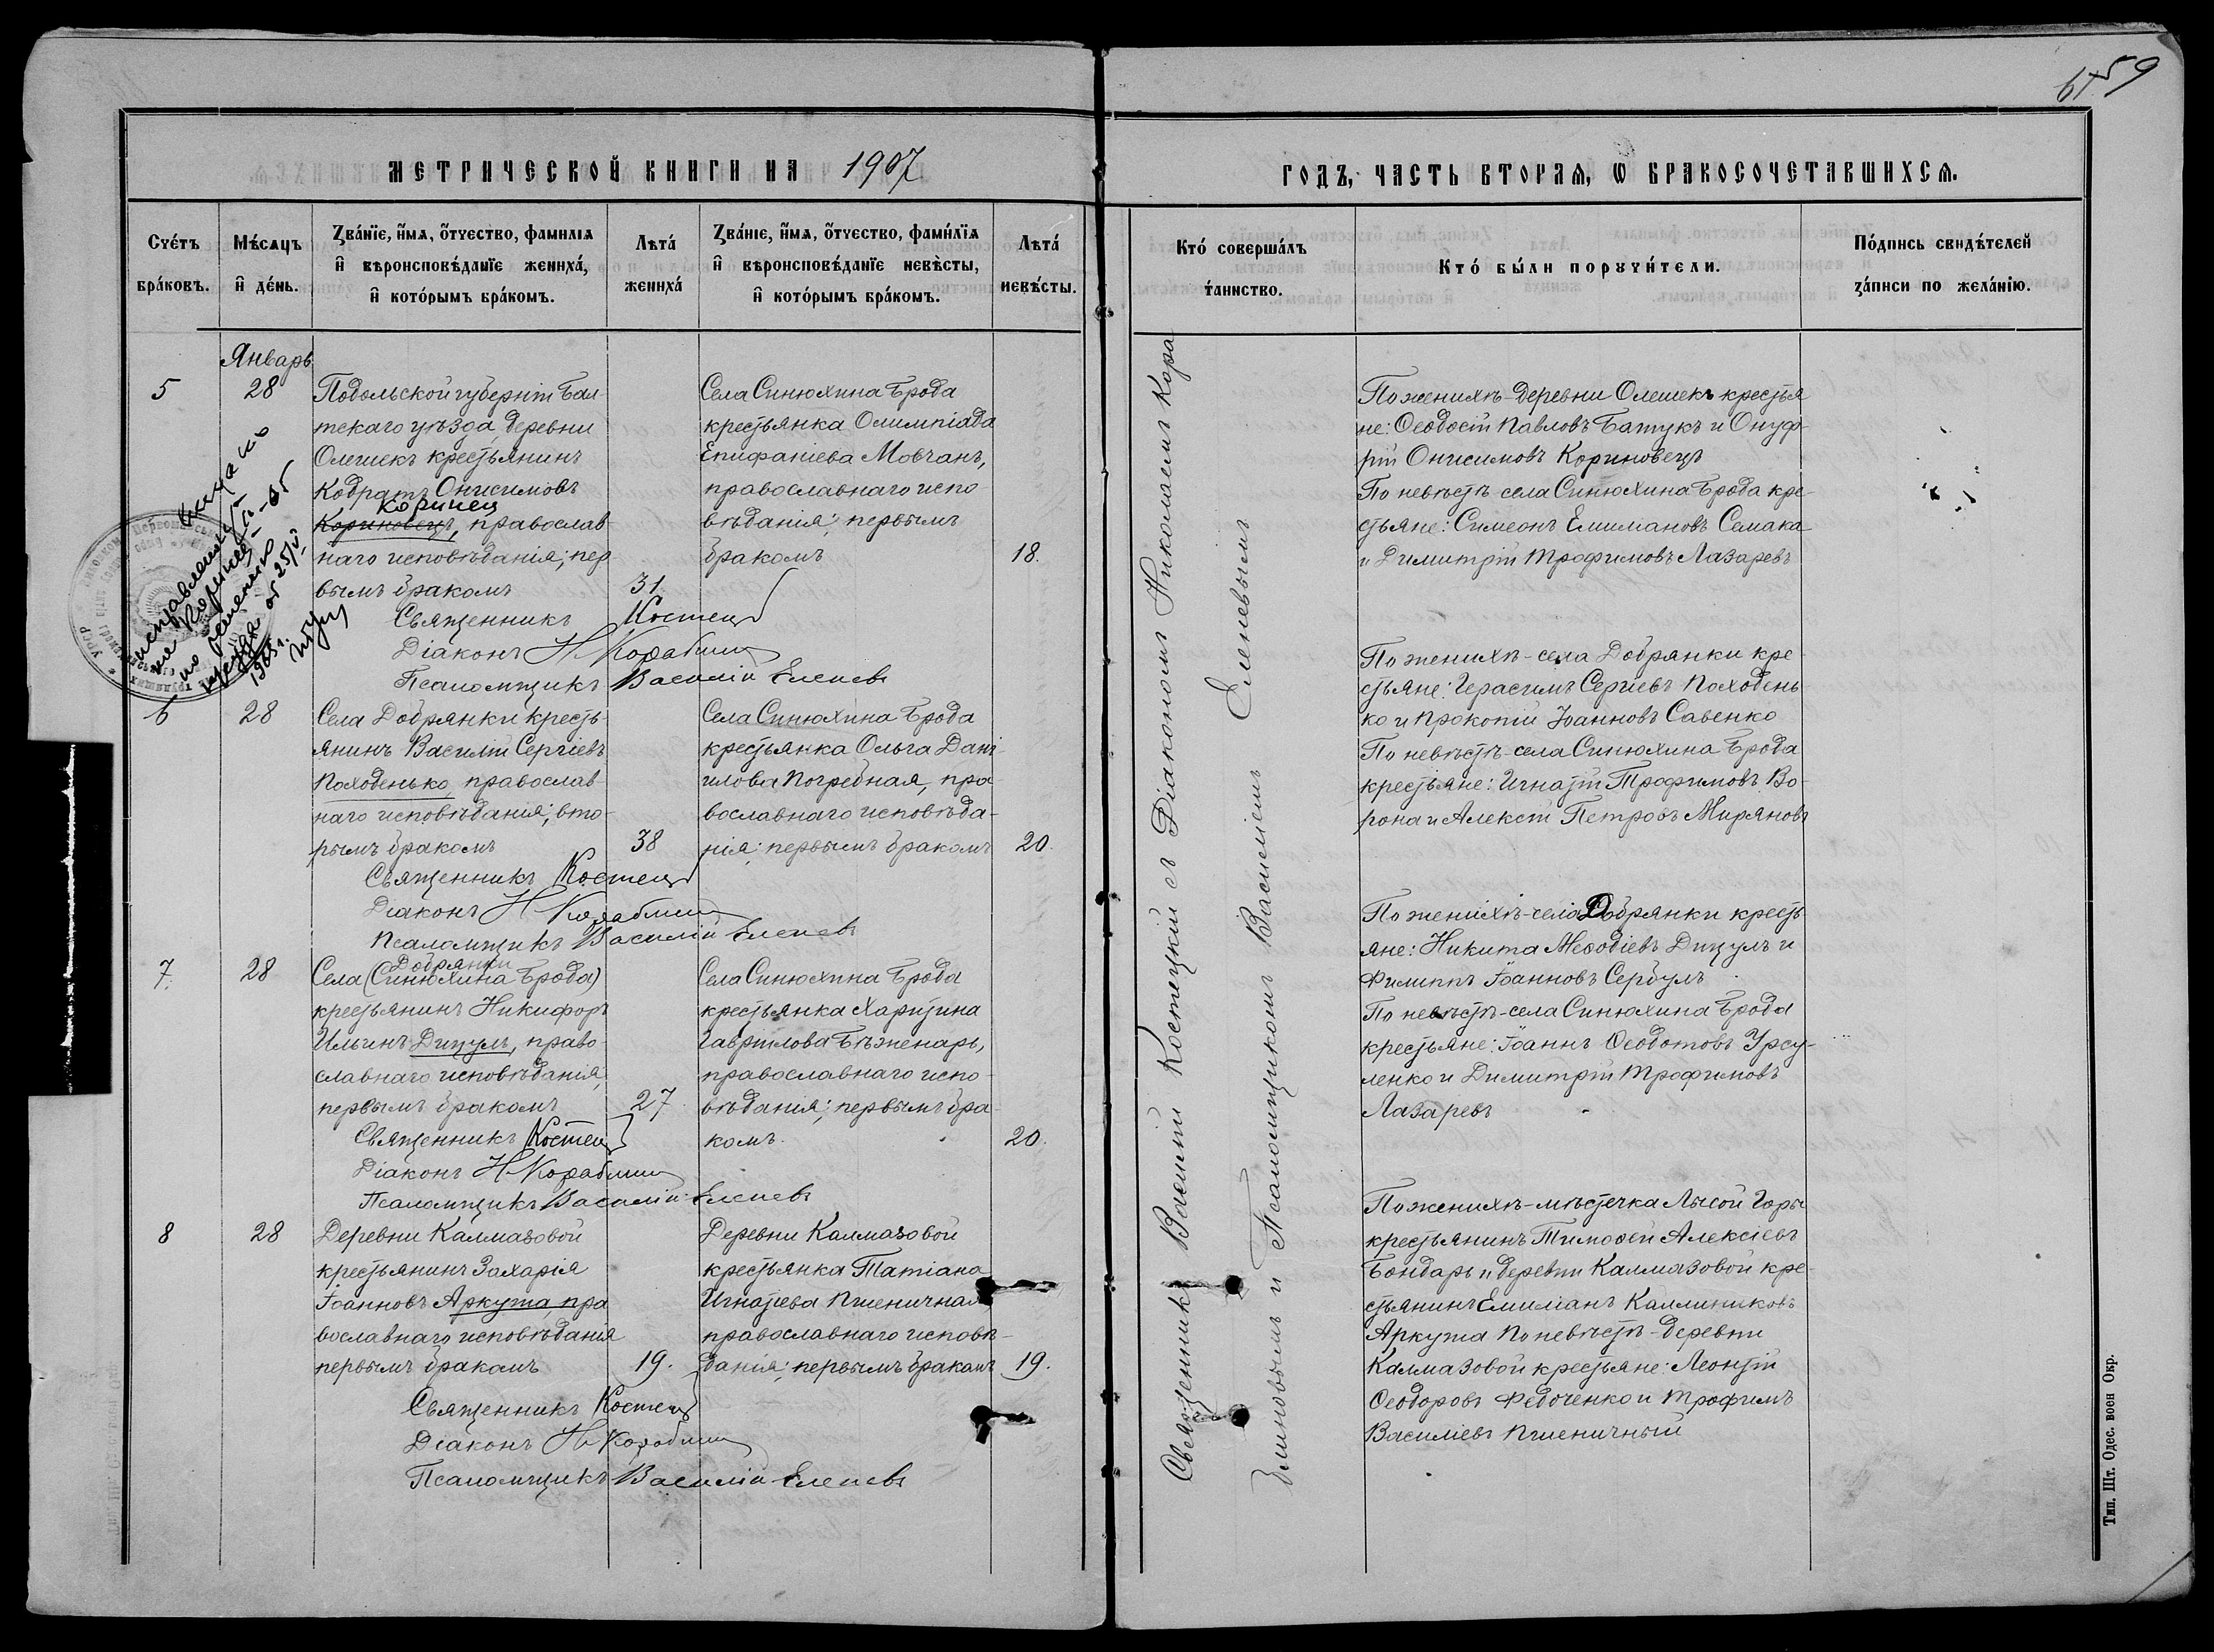 59
МЕТРИЧЕСКОЙ КНИГИ НА 1907
ГОДЪ, ЧАСТЬ ВТОРАЯ, Ѡ БРАКОСОЧЕТАВШИХСЯ.
Счетъ браковъ.
Мѣсяцъ и день.
Званіе, имя, отчество, фамилія и вѣроисповѣданіе жениха, и которымъ бракомъ.
Лѣта жениха
Званіе, имя, отчество, фамилія и вѣроисповѣданіе невѣсты, и которымъ бракомъ.
Лѣта невѣсты.
Кто совершалъ таинство.
Кто были поручители.
Подпись свидѣтелей записи по желанію.
Январь
5
28
Подольской губерніи Бал-
тскаго уѣзда, деревни
Олешекъ крестьянинъ
Кодратъ Онисимовъ
Коринец
Кориновецъ, православ-
наго исповѣданія; пер
вымъ бракомъ
31
Священникъ Костецкій
Діаконъ Н Кораблин
Псаломщикъ Василій Еленевъ
Села Синюхина Брода
крестьянка Олимпіада
Епифаніева Мовчанъ,
православнаго испо
вѣданія; первымъ
бракомъ
18.
По женихѣ - деревни Олешекъ крестья
не: Ѳеодосій Павловъ Батукъ и Онуф-
рій Онисимовъ Кориновецъ
По невѣстѣ села Синюхина Брода кре-
стьяне: Симеонъ Емилиановъ Самака
и Димитрій Трофимовъ Лазаревъ
исправлению
на Коринец
по решению
1965 г.
6
28
Села Добрянки кресть-
янинъ Василій Сергіевъ
Походенько, православ-
наго исповѣданія; вто-
рымъ бракомъ
38
Священникъ Костецкій
Діаконъ Н Кораблин
Псаломщикъ Василій Еленевъ
Села Синюхина Брода
крестьянка Ольга Дані
илова Погребная, пра-
вославнаго исповѣда-
нія; первымъ бракомъ
20.
По женихѣ - села Добрянки кре
стьяне: Герасимъ Сергіевъ Походень-
ко и Прокопій Іоанновъ Савенко
По невѣстѣ - села Синюхина Брода
крестьяне: Игнатій Трофимовъ Во-
рона и Алексій Петровъ Миряновъ
7.
28
Добрянки
Села (Синюхина Брода)
крестьянинъ Никифоръ
Ильинъ Дицулъ, право-
славнаго исповѣданія,
первымъ бракомъ
27
Священникъ Костецкій
Діаконъ Н Кораблин
Псаломщикъ Василій Еленевъ
Села Синюхина Брода
крестьянка Харитина
Гавріилова Бѣженарь,
православнаго испо-
вѣданія; первымъ бра-
комъ.
20.
По женихѣ - села Добрянки кресть
яне: Никита Меѳодіевъ Дицулъ и
Филиппъ Іоанновъ Сербулъ
По невѣстѣ - села Синюхина Брода
крестьяне: Іоаннъ Ѳеодотовъ Урсу-
ленко и Димитрій Трофимовъ
Лазаревъ
8
28
Деревни Калмазовой
крестьянинъ Захарія
Іоанновъ Аркуша, пра
вославнаго исповѣданія
первымъ бракомъ
19.
Священникъ Костецкій
Діаконъ Н Кораблин
Псаломщикъ Василій Еленевъ
Деревни Калмазовой
крестьянка Татіана
Игнатіева Пшеничная
православнаго исповѣ-
данія; первымъ бракомъ
19.
По женихѣ - мѣстечка Лысой Горы
крестьянинъ Тимоѳей Алексіевъ
Бондарь и деревни Калмазовой кре
стьянинъ Емиліанъ Каллиниковъ
Аркуша По невѣстѣ - деревни
Калмазовой крестьяне: Леонтій
Ѳеодоровъ Федоченко и Трофимъ
Василіевъ Пшеничный
Священникъ Василій Костецкій съ Діакономъ Николаемъ Кора
блиновымъ и Псаломщикомъ Василіемъ Еленевымъ
Тип. Шт. Одес. воен Окр.